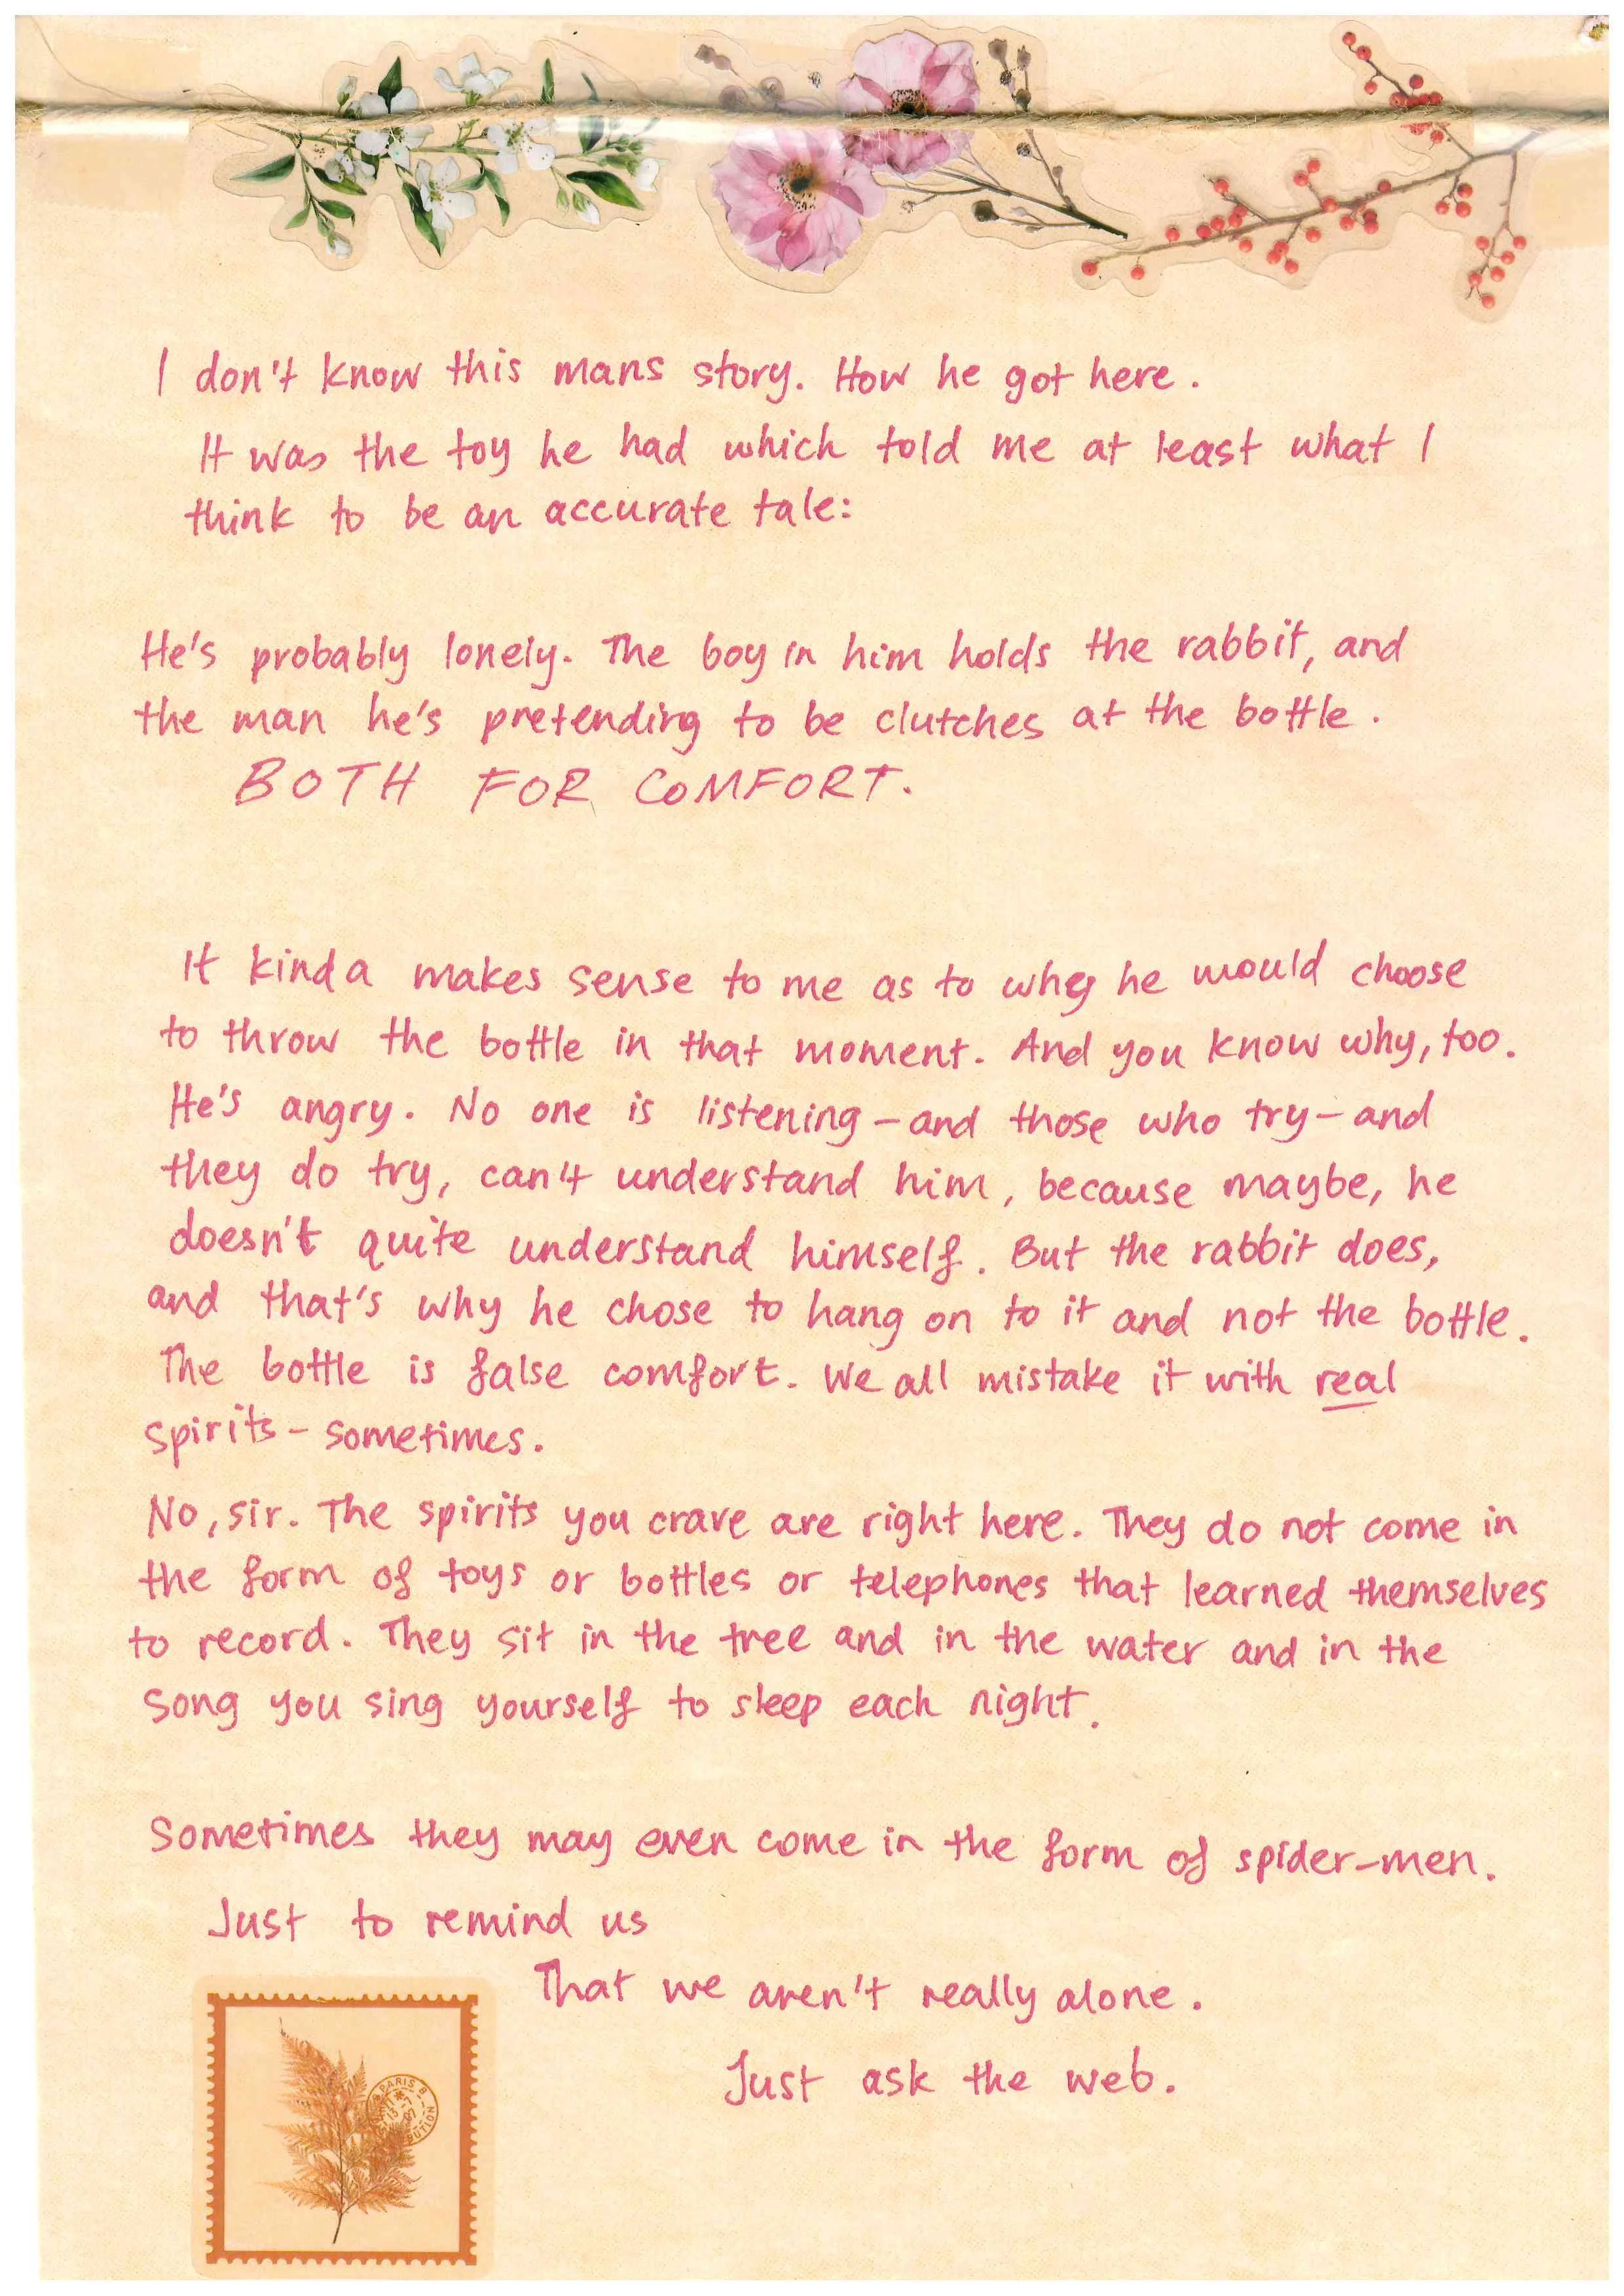 I don't know this mans story. How he got here.
It was the toy he had which told me at least what I
think to be an accurate tale:
He's probably lonely. The boy in him holds the rabbit, and
the man he's pretending to be clutches at the bottle.
BOTH FOR COMFORT.
It kinda makes sense to me as to why he would choose
to throw the bottle in that moment. And you know why, too.
He's angry. No one is listening – and those who try – and
they do try, can't understand him, because maybe, he
doesn't quite understand himself. But the rabbit does,
and that's why he chose to hang on to it and not the bottle.
The bottle is false comfort. We all mistake it with real
spirits – sometimes.
No, sir. The spirits you crave are right here. They do not come in
the form of toys or bottles or telephones that learned themselves
to record. They sit in the tree and in the water and in the
song you sing yourself to sleep each night.
Sometimes they may even come in the form of spider-men.
Just to remind us
That we aren't really alone.
Just ask the web.
PARIS 8